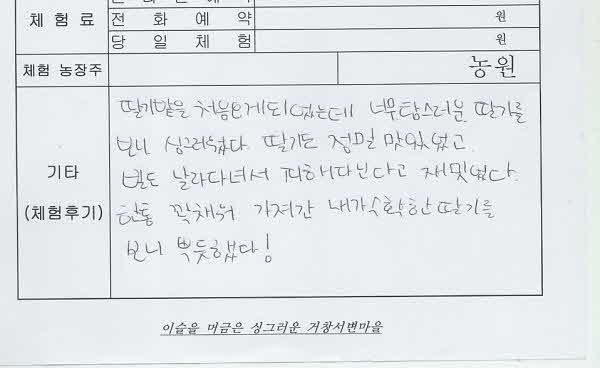 체험료
전화예약 원
당일체험 원
체험 농장주 농원
기타
(체험후기)
딸기밭을 처음오게되었는데 너무탐스러운 딸기를
보니 싱그러웠다. 딸기도 정말 맛있었고
벌도 날라다녀서 피해다닌다고 재밌었다.
한통 꽉채워 가져간 내가수확한딸기를
보니 뿌듯했다!
이슬을 머금은 싱그러운 거창서변마을